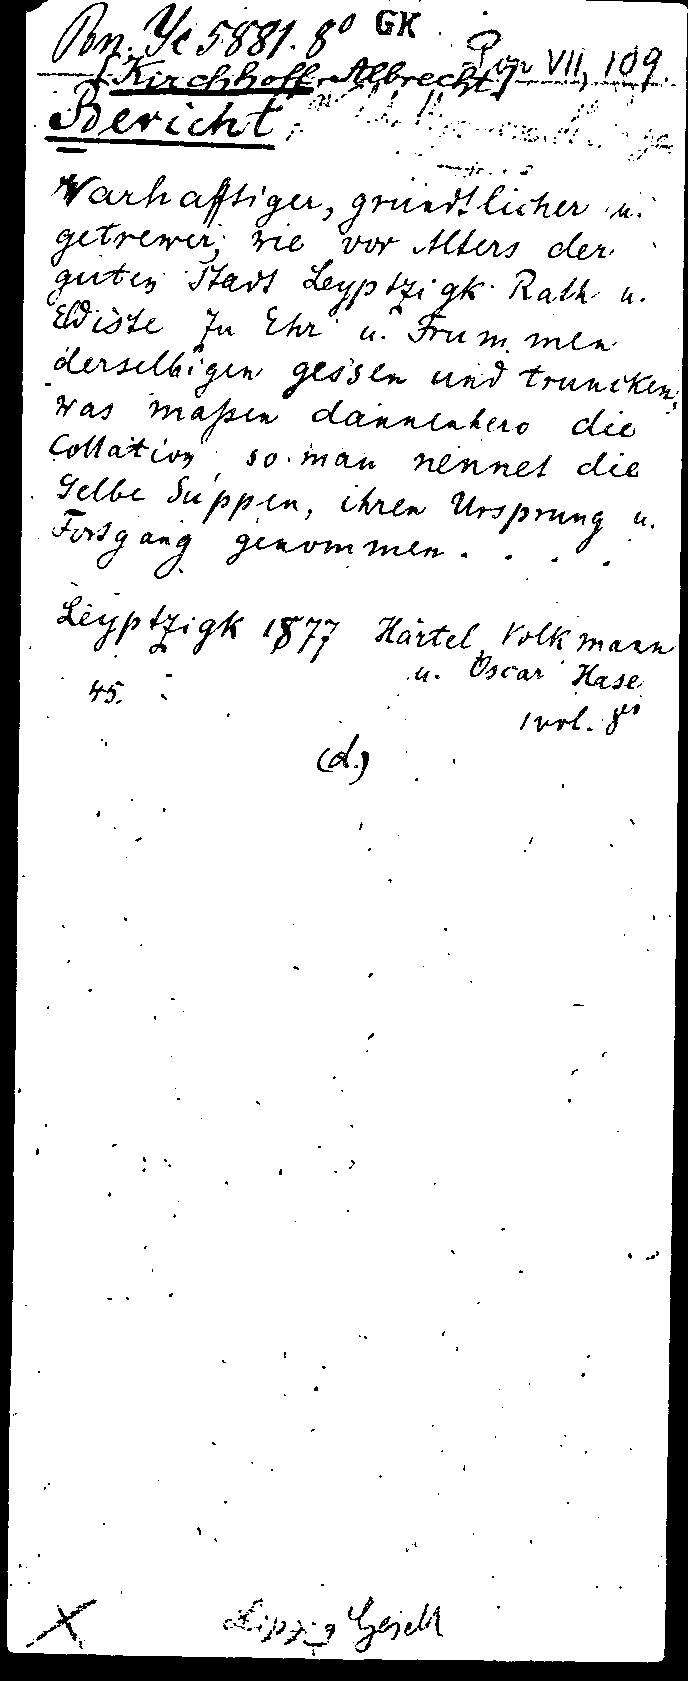 Pon. Yc 5881. 8° GK
Pon VII, 109.
[Kirchhoff, Albrecht]
Bericht,
Warhafftiger, gründtlicher u.
getrewer, wie vor Alters der
guten Stadt Leyptzigk Rath u.
Eldiste zu Ehr u. Frummen
derselbigen gessen und truncken,
was maßen dannenhero die
Collation, so man nennet die
Gelbe Suppen, ihren Ursprung u.
Fortgang genommen . . . .
Leyptzigk 1877 Härtel, Volkmann
u. Oscar Hase
45.
1 vol. 8°
(d.)
X Leipzig Gesch